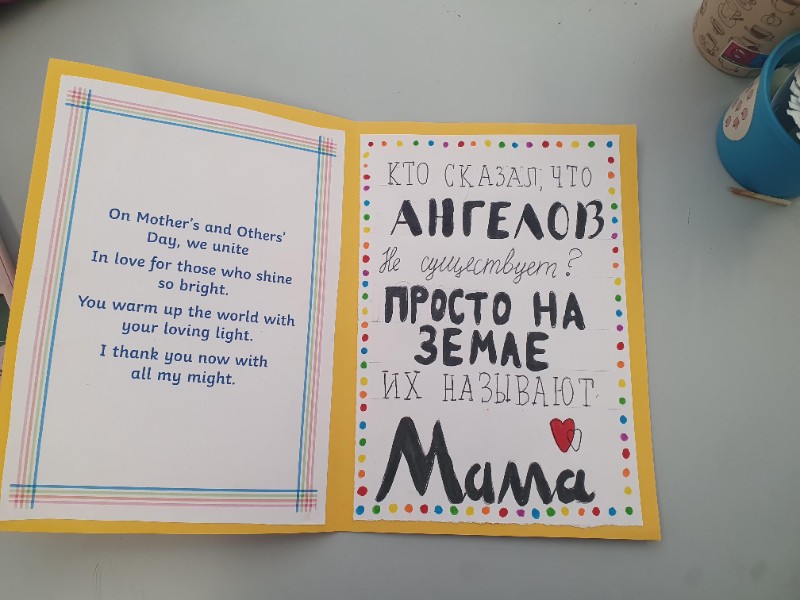 On Mother's and Others'
Day, we unite
In love for those who shine
so bright.
You warm up the world with
your loving light.
I thank you now with
all my might.
КТО СКАЗАЛ, ЧТО
АНГЕЛОВ
Не существует?
ПРОСТО НА
ЗЕМЛЕ
ИХ НАЗЫВАЮТ
Мама